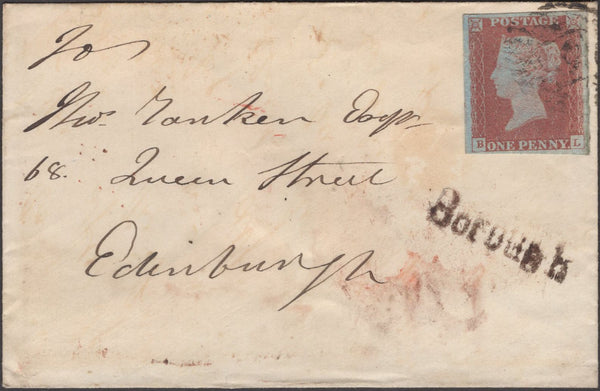 POSTAGE
B ONE PENNY L
To
Thos. Yonken Esqr
68. Queen Street
Edinburgh
Borough